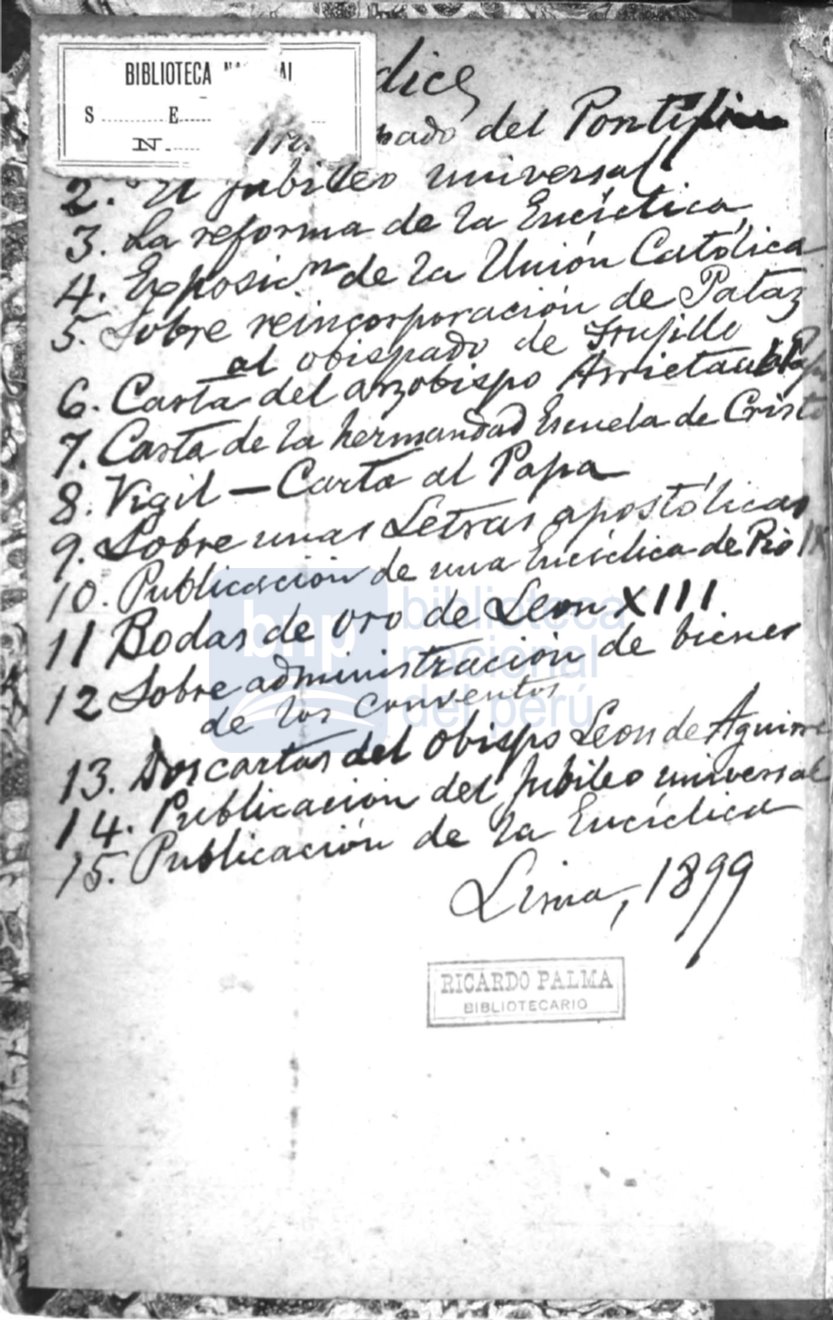 BIBLIOTECA
S E
N.
dice
pado del Pontífice
2. El jubileo universal
3. La reforma de la Encíclica
4. Exposicin de la Unión Católica
5. Sobre reincorporación de Pataz
al obispado de Trujillo
6. Carta del arzobispo Arrieta al Papa
7. Carta de la hermandad Escuela de Cristo
8. Vigil — Carta al Papa
9. Sobre unas Letras apostólicas
10. Publicacion de una Encíclica de Pio IX
11 Bodas de oro de Leon XIII
12 Sobre administración de bienes
de los conventos
13. Dos cartas del obispo Leon de Aguirre
14. Publicacion del jubileo universal
15. Publicación de la Encíclica
Lima, 1899
RICARDO PALMA
BIBLIOTECARIO
bnp biblioteca
nacional
del perú